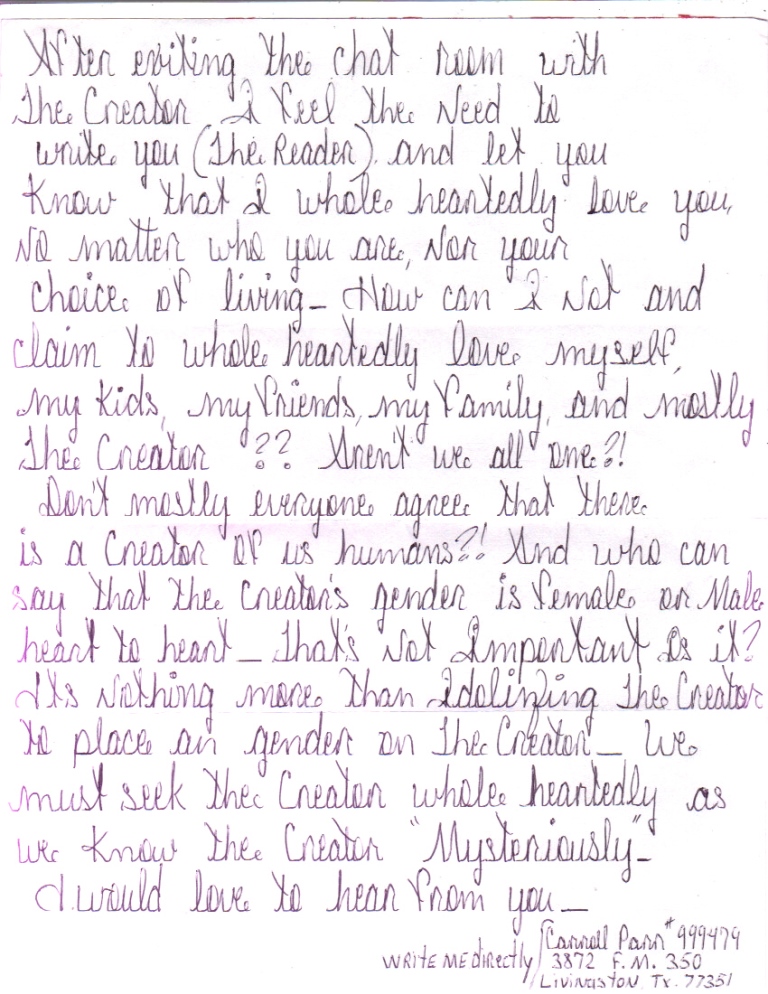 After exiting the chat room with
The Creator I feel the Need to
write you (The Reader) and let you
Know that I whole heartedly love you,
No matter who you are, Nor your
choice of living_ How can I Not and
claim to whole heartedly love myself,
my kids, my friends, my family, and mostly
The Creator ?? Aren't we all one?!
Don't mostly everyone agree that there
is a Creator of us humans?! And who can
say that the Creator's gender is female or Male
heart to heart_ That's Not Important Is it?
Its Nothing more than Idolizing The Creator
to place an gender on The Creator_ We
must seek the Creator whole heartedly as
we Know the Creator "Mysteriously"_
I would love to hear from you_
Carroll Parr # 999479
WRITE ME directly / 3872 F.M. 350
Livingston, Tx. 77351